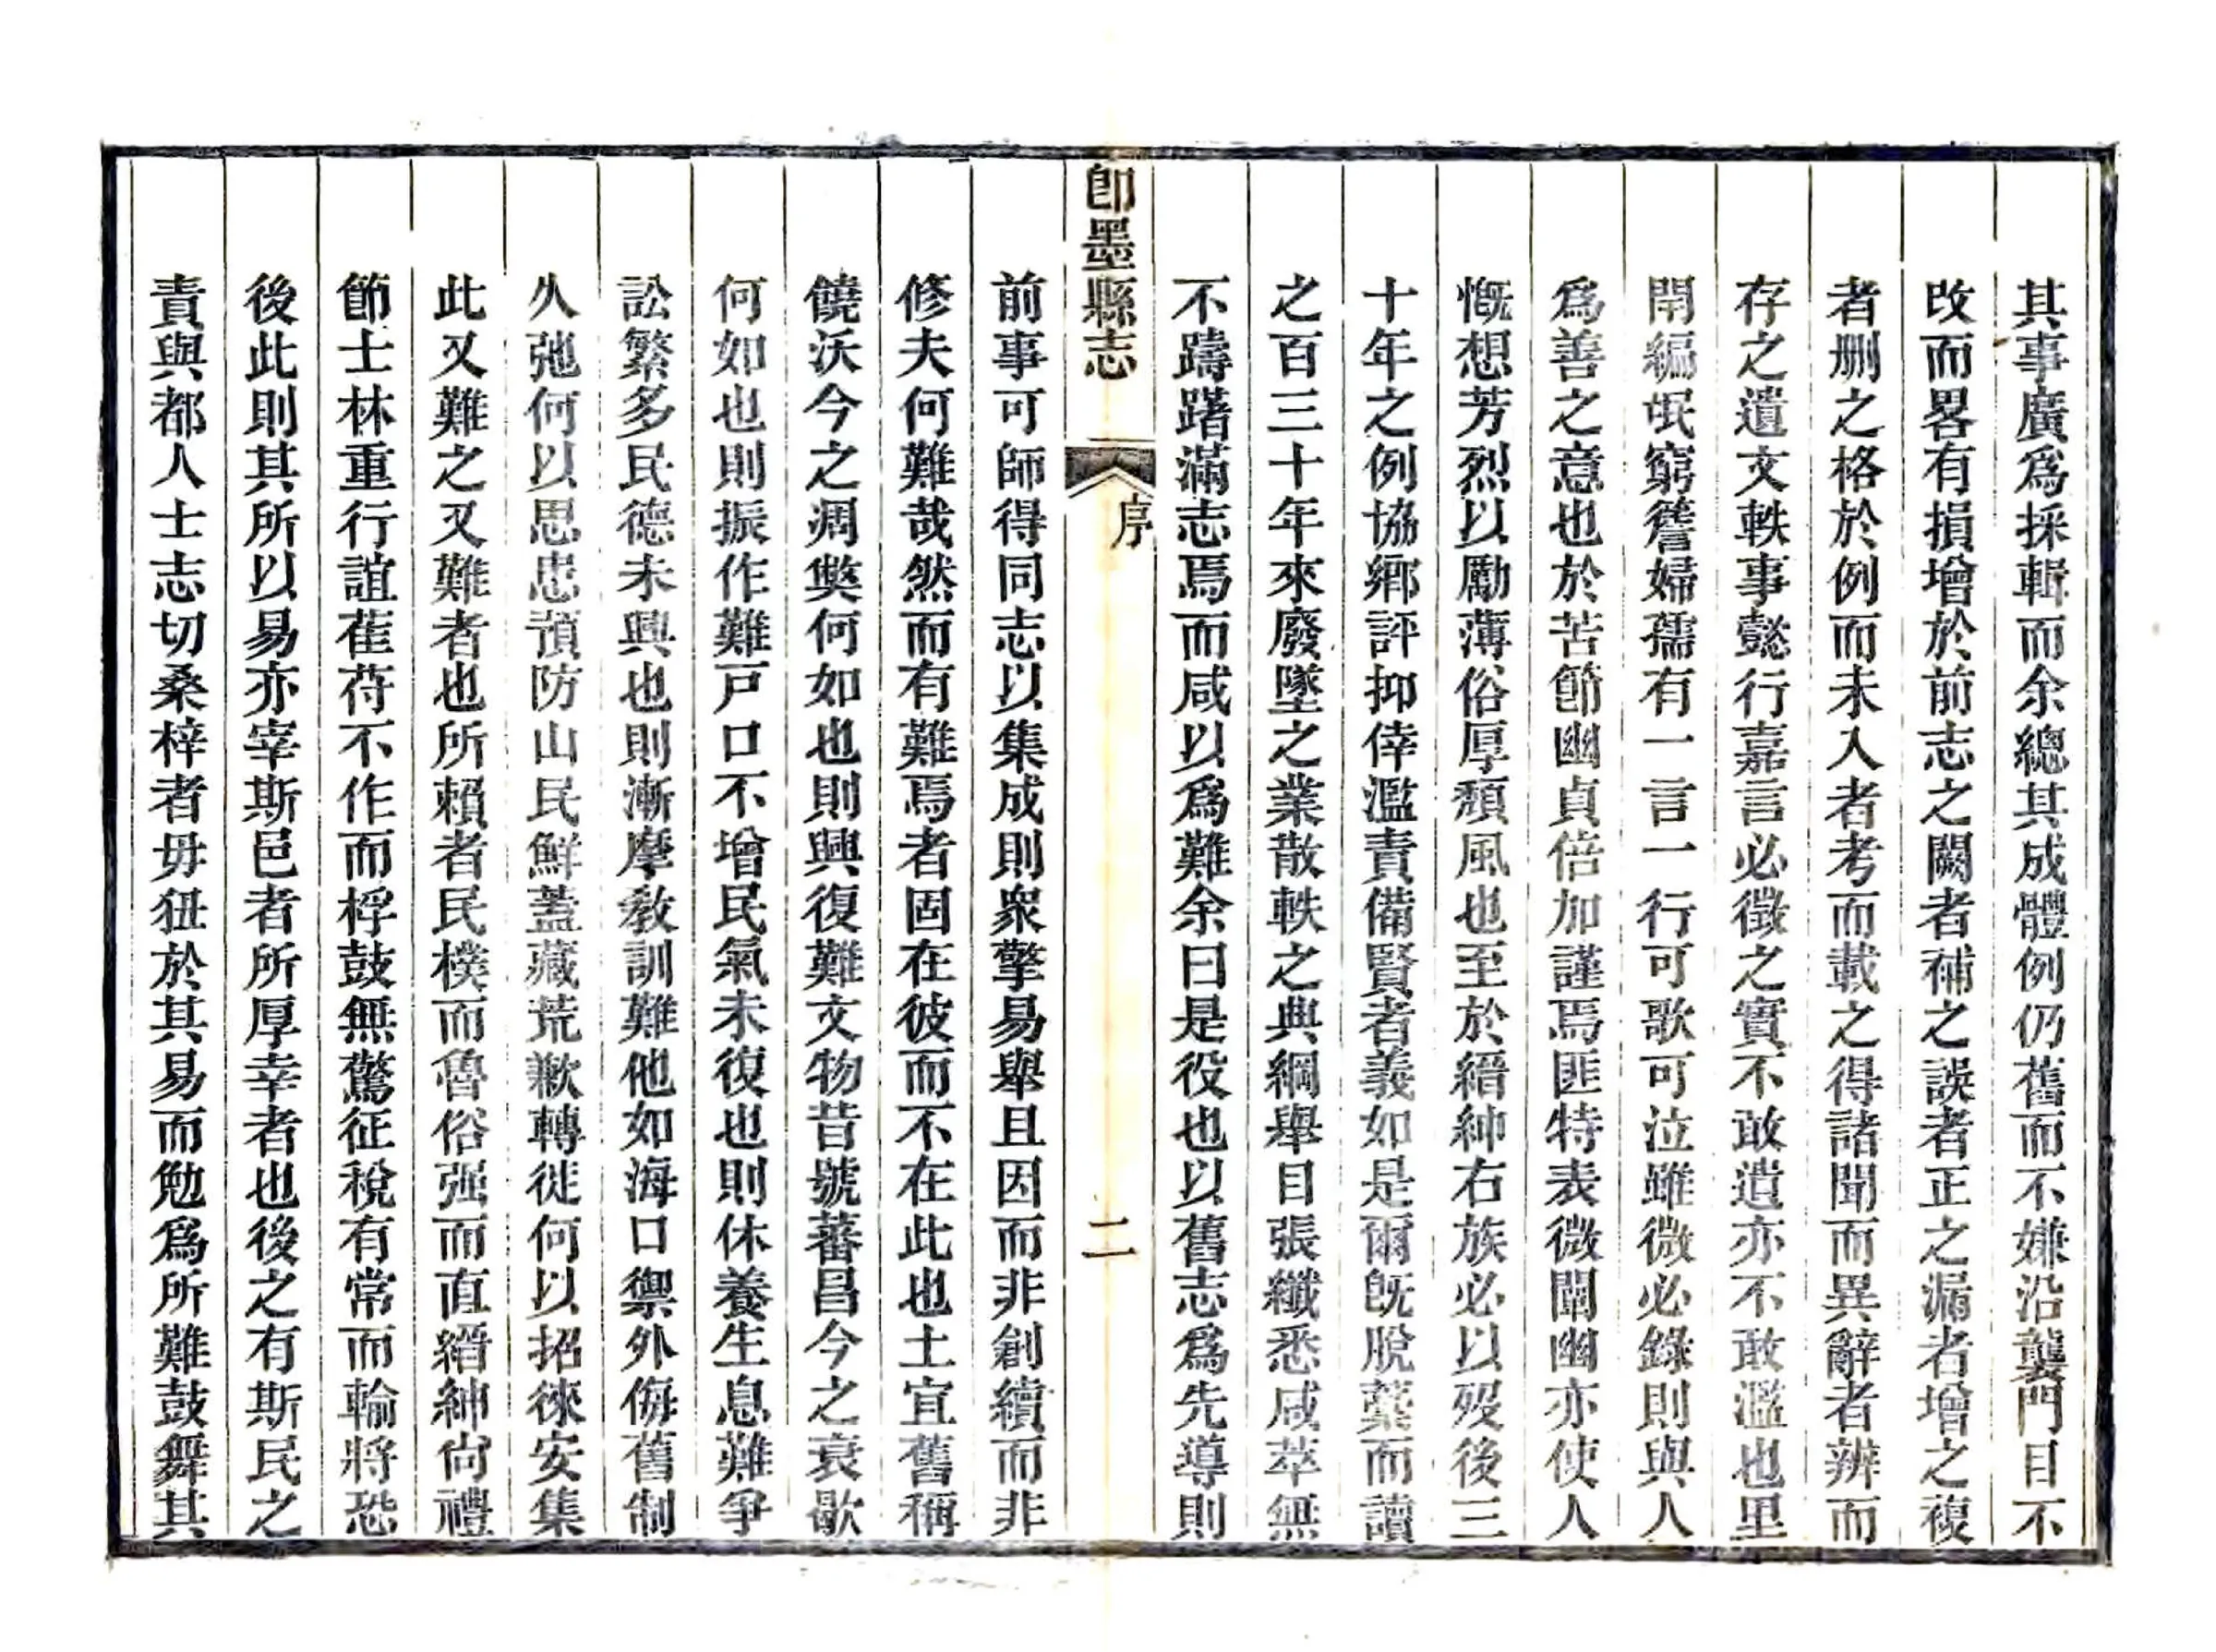 其事廣爲採輯而余總其成體例仍舊而不嫌沿襲門目不
改而畧有損增於前志之闕者補之誤者正之漏者增之複
者刪之格於例而未入者考而載之得諸聞而異辭者辨而
存之遺文軼事懿行嘉言必徵之實不敢遺亦不敢濫也里
閈編氓窮簷婦孺有一言一行可歌可泣雖微必錄則與人
爲善之意也於苦節幽貞倍加謹焉匪特表微闡幽亦使人
慨想芳烈以勵薄俗厚頹風也至於縉紳右族必以歿後三
十年之例協鄉評抑倖濫責備賢者義如是爾旣脫藁而讀
之百三十年來廢墜之業散軼之典綱舉目張纖悉咸萃無
不躊躇滿志焉而咸以爲難余曰是役也以舊志爲先導則
卽墨縣志
序
二
前事可師得同志以集成則衆擎易舉且因而非創續而非
修夫何難哉然而有難焉者固在彼而不在此也土宜舊稱
饒沃今之凋獘何如也則興復難文物昔號蕃昌今之衰歇
何如也則振作難戸口不增民氣未復也則休養生息難爭
訟繁多民德未興也則漸摩敎訓難他如海口禦外侮舊制
久弛何以思患預防山民鮮蓋藏荒歉轉徙何以招徠安集
此又難之又難者也所賴者民樸而魯俗强而直縉紳尙禮
節士林重行誼萑苻不作而桴鼓無驚征稅有常而輸將恐
後此則其所以易亦宰斯邑者所厚幸者也後之有斯民之
責與都人士志切桑梓者毋狃於其易而勉爲所難鼓舞其